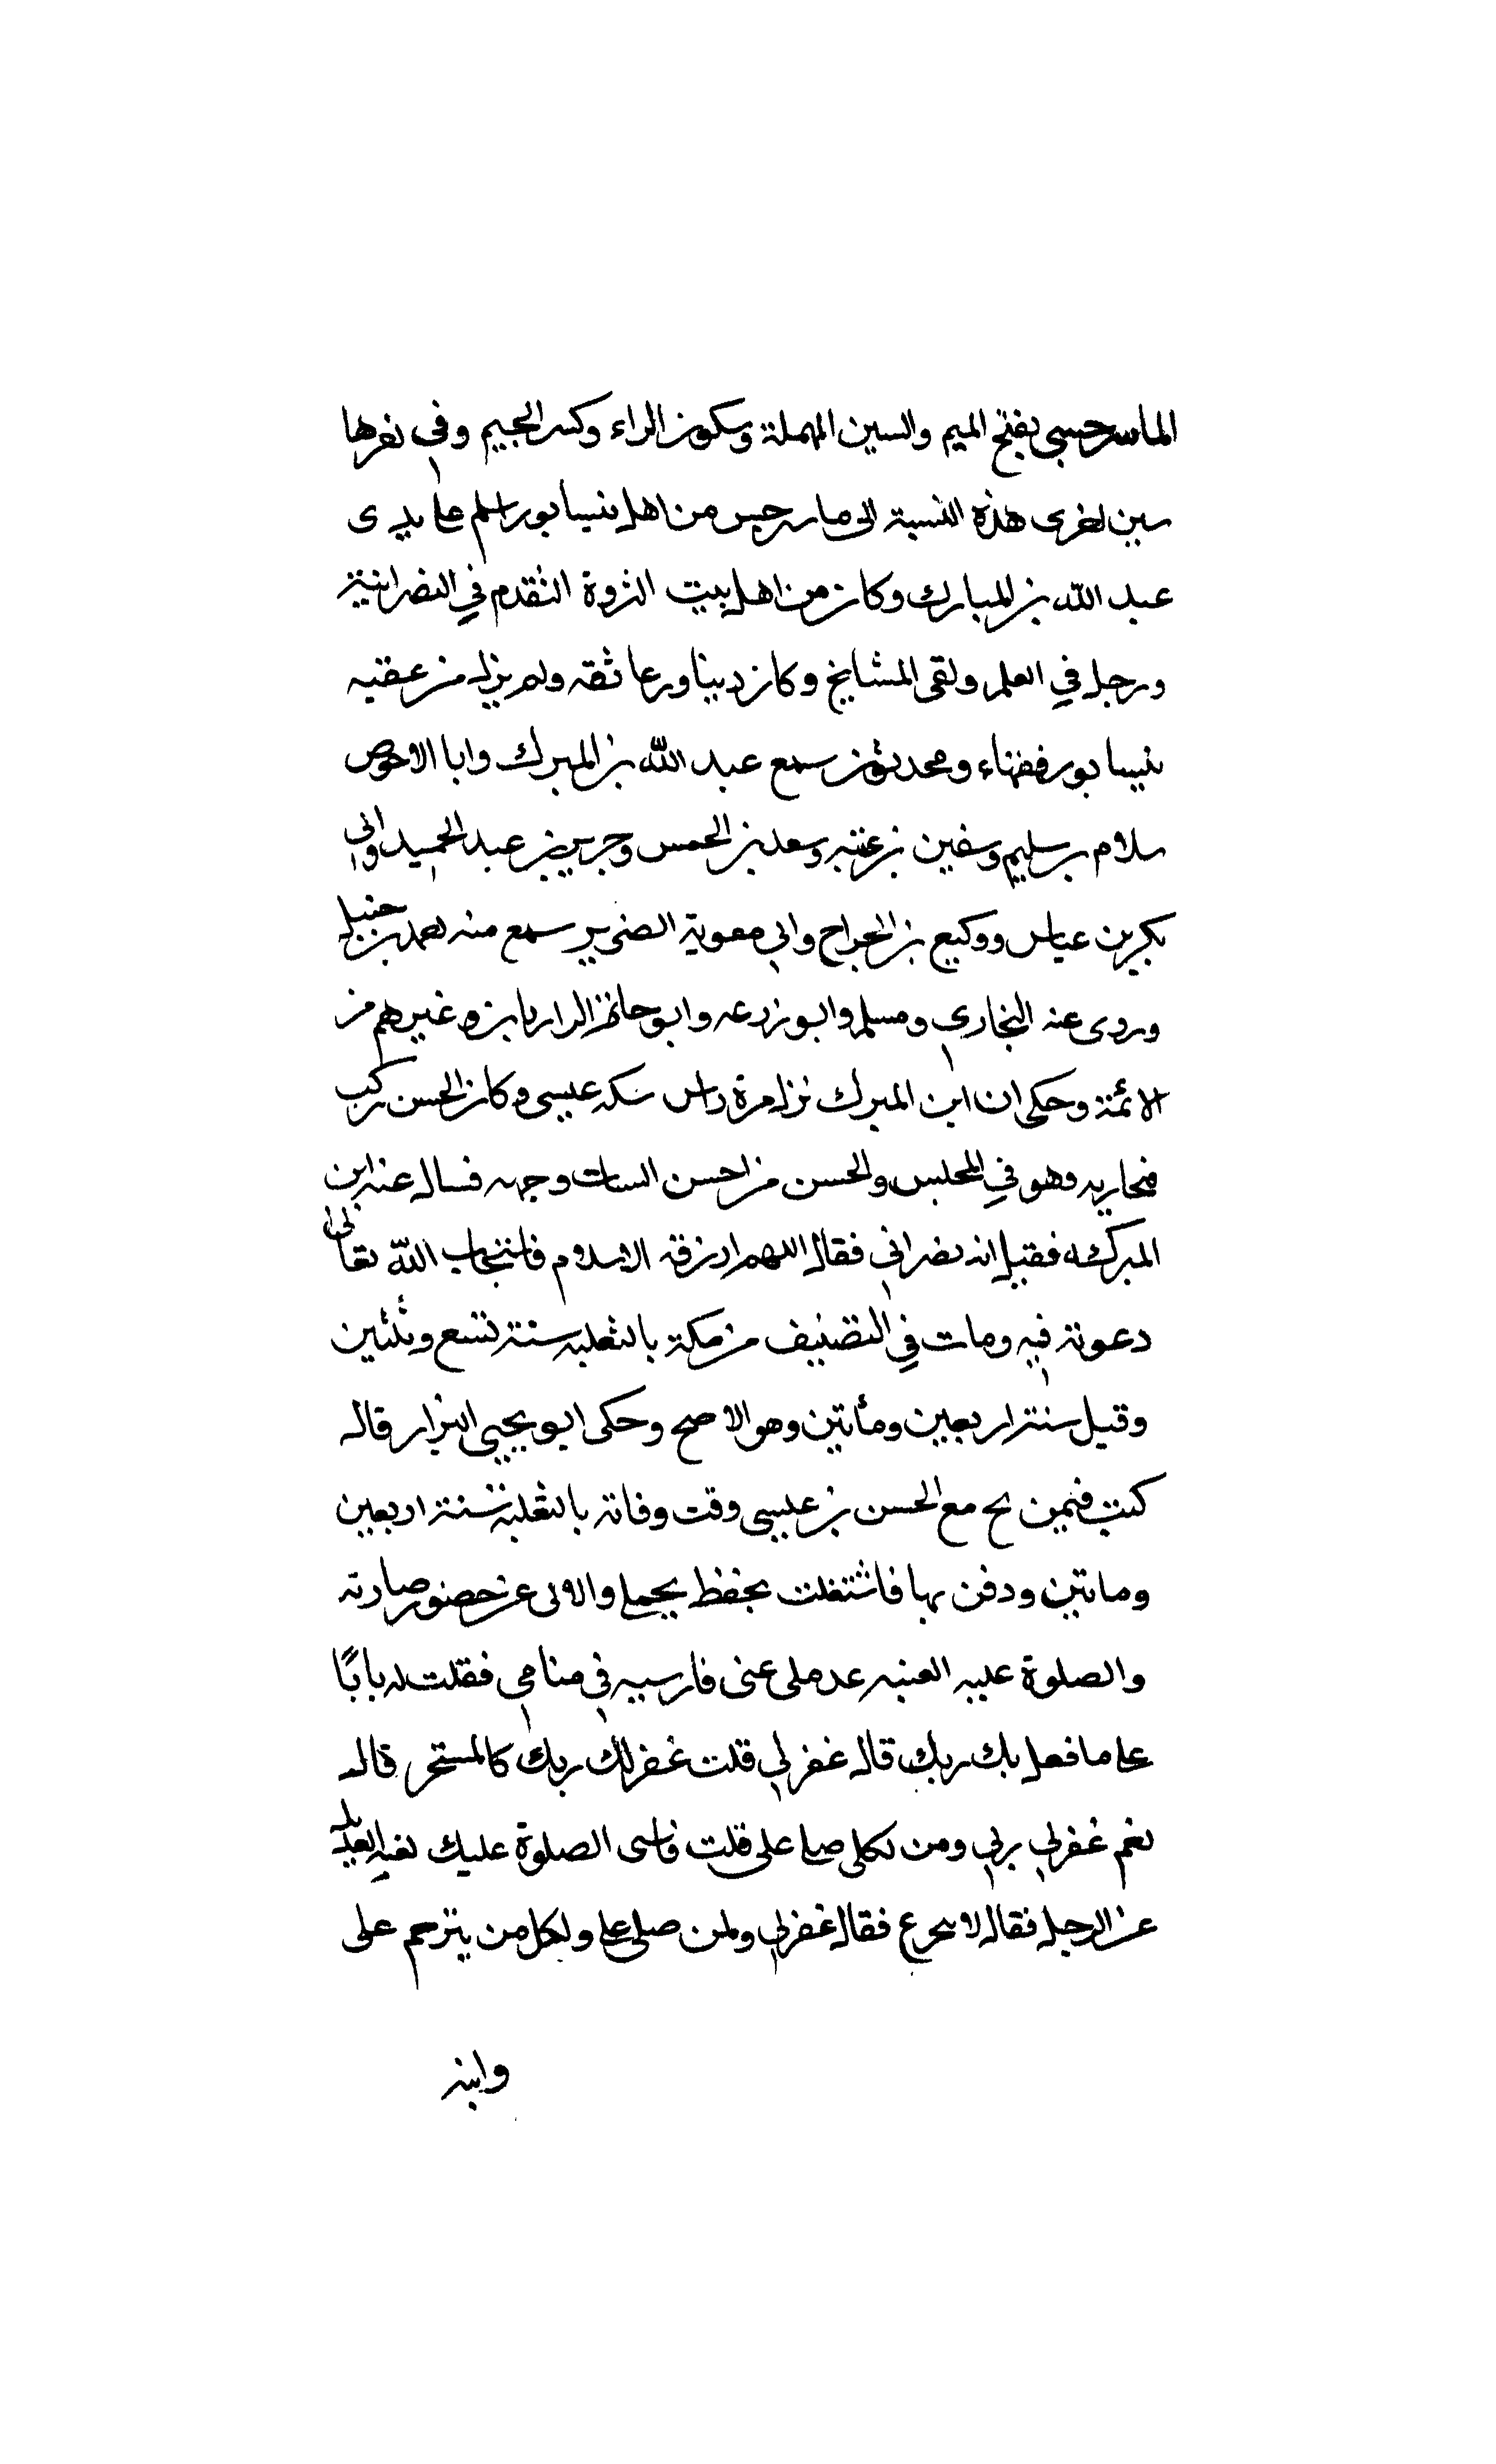 الماسرجسي بفتح الميم والسين المهملة وسكون الراء وكسر الجيم وفي اخرها
سين اخرى هذه النسبة الى ماسرجس من اهل نيسابور اسلم على يدى
عبد الله بن المبارك وكان من اهل بيت الثروة التقدم في النصرانية
ورحل في العلم ولقى المشايخ وكان دينا ورعا ثقه ولم يزل من عقبه
بنيسابور فقهاء ومحدثون سمع عبد الله بن المبرك وابا الاحوص
سلام بن سليم وسفين بن عيينه وسعد بن الخمس وجرير بن عبد الحميد وابي
بكر بن عياش ووكيع بن الجراح وابي معوية الضرير سمع منه احمد بن حنبل
وروى عنه البخاري ومسلم وابو زرعه وابو حاتم الرازيان وغيرهم من
الائمة وحكى ان ابن المبرك نزل مرة راس سكه عيسى وكان الحسن يركب
فيجاريه وهو في المجلس والحسن من احسن الشباب وجهه فسال عنه ابن
المبرك فقيل انه نصراني فقال اللهم ارزقه الاسلام فاستجاب الله تعالى
دعوته فيه ومات في التصنيف من مكة بالثعلبه سنة تسع وثلثين
وقيل سنة اربعين ومأتين وهو الاصح وحكى ابو يحيى البزار قال
كنت فيمن حج مع الحسن بن عيسى وقت وفاته بالثعلبة سنة اربعين
وماتين ودفن بها فاشتغلت بحفظ محملى والاتى عن حضور
والصلوة عليه فاريته في منامي فقلت له يابا
على ما فعل بك ربك قال غفر لي قلت غفر لك ربك كالمستخر قال
نعم غفر لي ربي ومن صلى على قلت فاتنى الصلوة عليك لغيبة العديل
عن الرحل فقال لا تجزع فقال غفر لي ولمن صلى على ولكل من يترحم على
وابنه